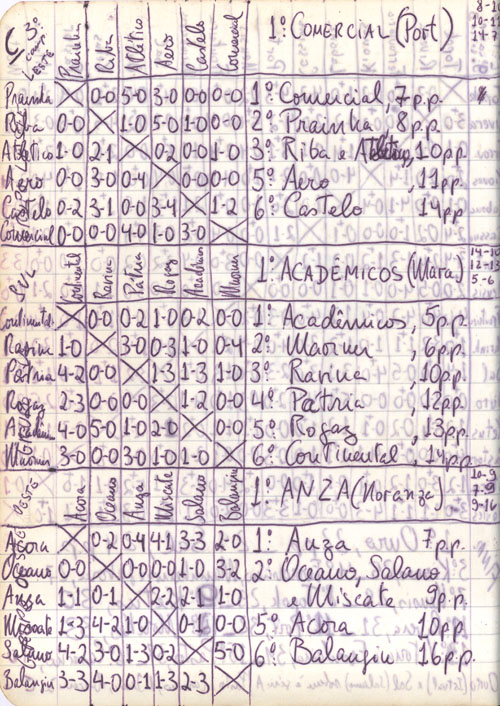 C 3º LESTE Prainha Riba Atlético Aero Castelo Comercial 1º COMERCIAL (Port)
Prainha X 0-0 5-0 3-0 0-0 0-0 1º Comercial, 7 p.p.
Riba 0-0 X 1-0 5-0 1-0 0-0 2º Prainha, 8 p.p.
Atlético 1-0 2-1 X 0-2 0-0 1-0 3º Riba e Atlético, 10 pp.
Aero 0-0 3-0 0-4 X 0-0 0-0 5º Aero, 11 pp.
Castelo 0-2 3-1 0-0 3-4 X 1-2 6º Castelo 14 pp.
Comercial 0-0 0-0 4-0 1-0 3-0 X
SUL Continental Ravine Pátria Rogaz Acadêmicos 1º ACADÊMICOS (Mara) 14-10
12-13
5-6
Continental X 0-0 0-2 1-0 0-2 0-0 1º Acadêmicos, 5 pp.
Ravine 1-0 X 3-0 0-3 1-0 0-4 2º, 6 pp.
Pátria 4-2 0-0 X 1-3 1-3 1-0 3º Ravina, 10 pp.
Rogaz 2-3 0-0 0-0 X 1-2 0-0 4º Pátria, 12 pp.
4-0 5-0 1-0 2-0 X 0-0 5º Rogaz, 13 pp.
3-0 0-0 3-0 1-0 1-0 X 6º Continental, 14 pp.
OESTE Acora Oceano Anza Miscate Salano Balangin 1º ANZA (Noranza)
9-16
Acora X 0-2 0-4 4-1 3-3 2-0 1º Anza 7 pp.
Oceano 0-0 X 0-0 0-0 1-0 3-2 2º Oceano, Salano
Anza 1-1 0-1 X 2-2 2-1 1-0 e Miscate 9 p.p.
Miscate 1-3 4-2 1-0 X 0-1 0-0 5º Acora 10 pp.
Salano 4-2 3-0 1-3 0-2 X 5-0 6º Balangin 16 pp.
Balangin 3-3 4-0 0-1 1-3 2-3 X